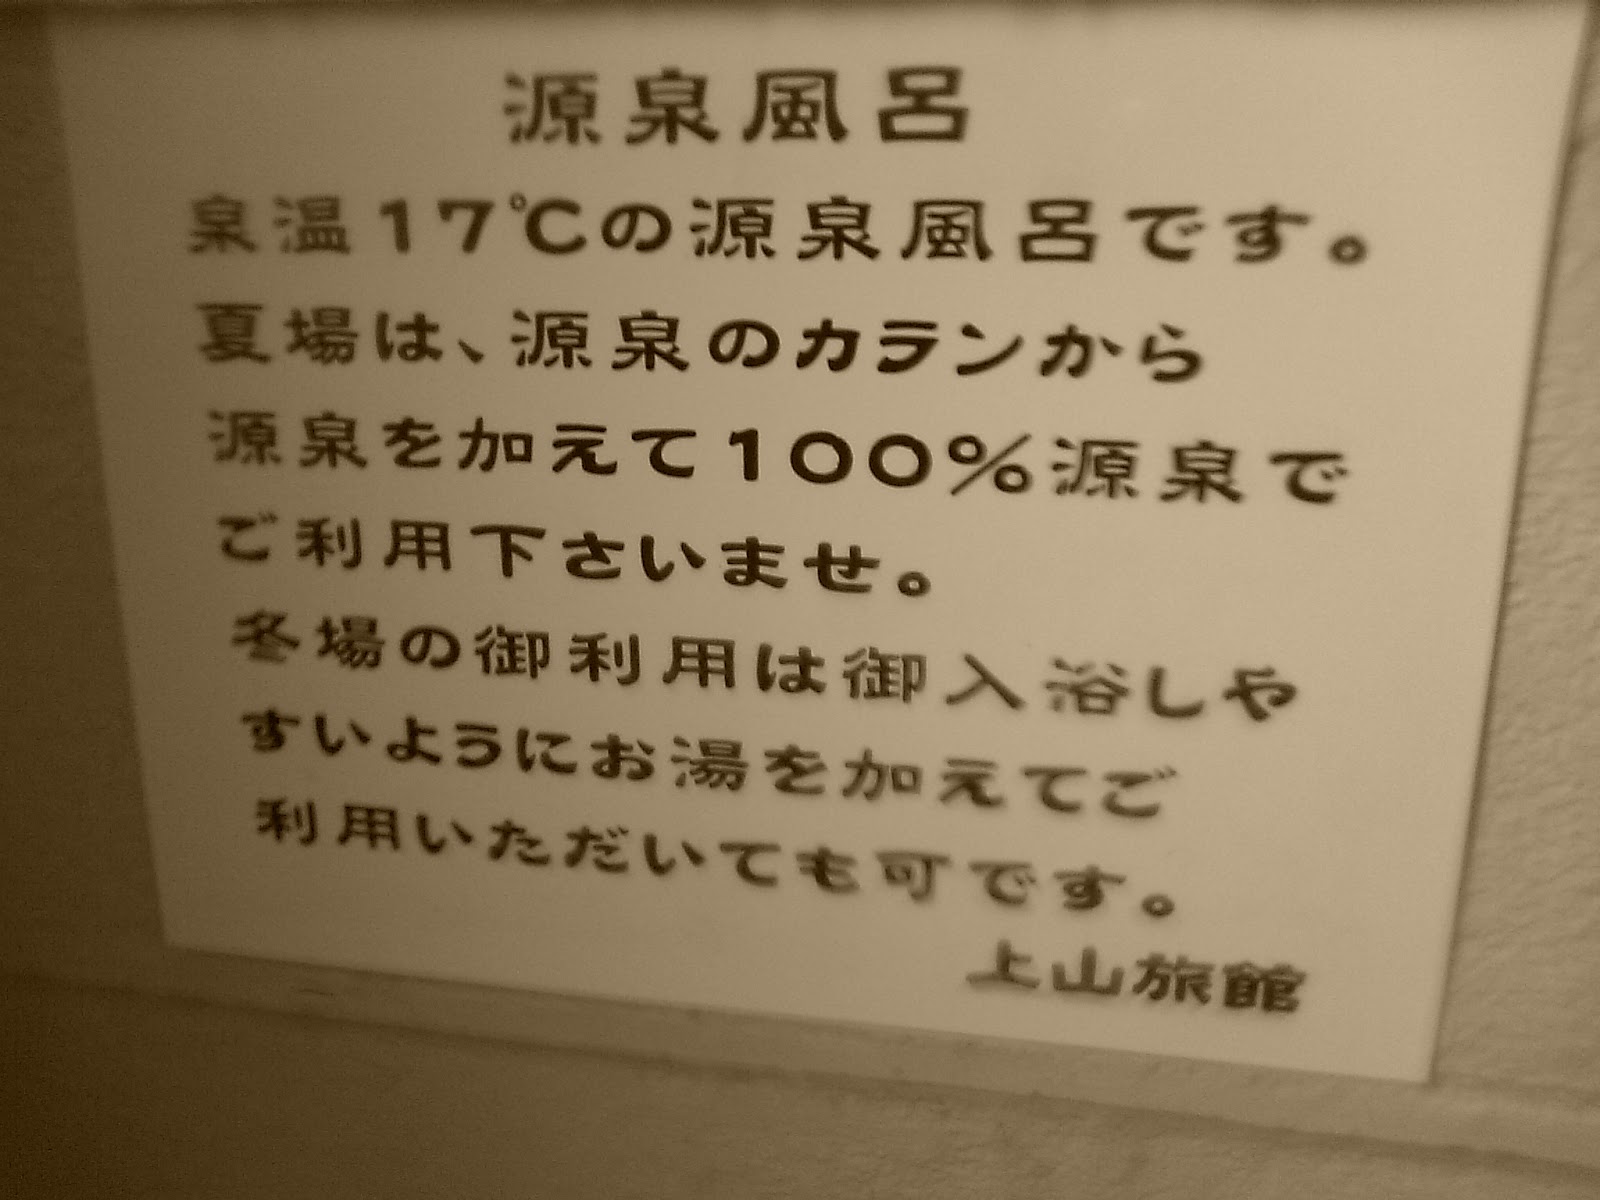 源泉風呂
泉温17℃の源泉風呂です。
夏場は、源泉のカランから
源泉を加えて100%源泉で
ご利用下さいませ。
冬場の御利用は御入浴しや
すいようにお湯を加えてご
利用いただいても可です。
上山旅館